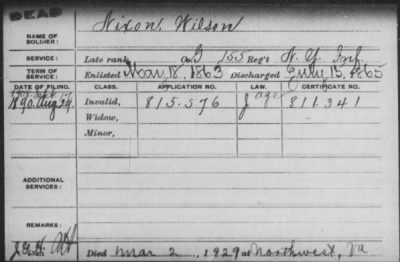 DEAD
NAME OF SOLDIER: Nixon, Wilson
SERVICE: Late rank Co. G 155 Reg't N. Y. Inf.
TERM OF SERVICE: Enlisted Nov. 18, 1863 Discharged July 15, 1865
DATE OF FILING. CLASS. APPLICATION NO. LAW. CERTIFICATE NO.
1890. Aug 29. Invalid, 815.576 J age 811.341
Widow,
Minor,
ADDITIONAL SERVICES:
REMARKS:
Died Mar 2, 1929 at Northwest, Va